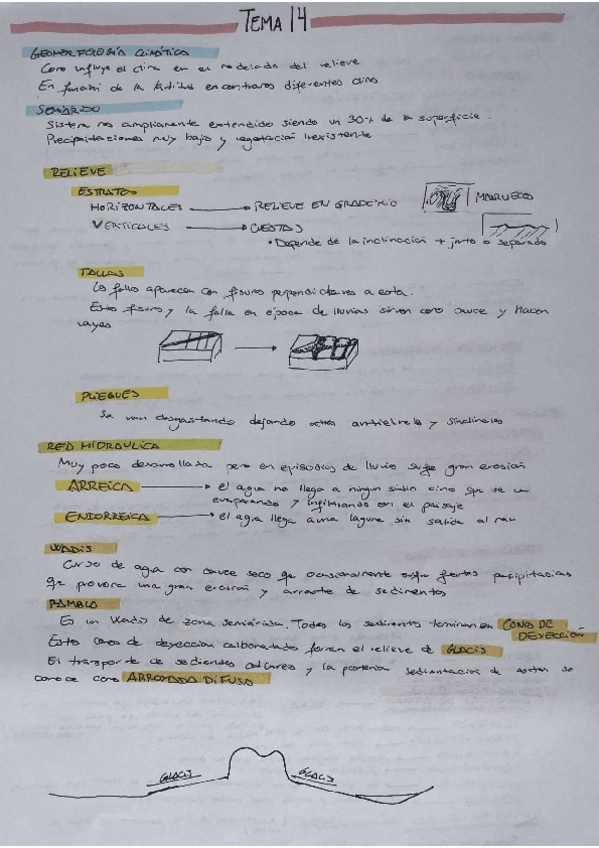 TEMA 14
GEOMORFOLOGÍA CLIMÁTICA
Como influye el clima en el modelado del relieve
En función de la latitud encontramos diferentes climas
SEMIÁRIDO
Sistema más ampliamente extendido siendo un 30% de la superficie.
Precipitaciones muy bajas y vegetación inexistente
RELIEVE
ESTRATOS
HORIZONTALES → RELIEVE EN GRADERIO MARRUECO
VERTICALES → CUESTAS
• Depende de la inclinación + junto o separado
FALLAS
Las fallas aparecen con fisuras perpendiculares a esta.
Esta fisura y la falla en época de lluvias sirven como cauce y hacen
valles
PLIEGUES
Se van desgastando dejando otros anticlinales y sinclinales
RED HIDRAULICA
Muy poco desarrollada pero en episodios de lluvia sufre gran erosión
ARREICA → el agua no llega a ningún sino que se va
evaporando y infiltrando en el paisaje
ENDORREICA → el agua llega a una laguna sin salida al mar
WADIS
Curso de agua con cauce seco qe ocasionalmente sufre fuertes precipitaciones
qe provoca una gran erosión y arrastre de sedimentos
RAMBLA
Es un Wadis de zona semiárida. Todos los sedimentos terminan en CONO DE
DEYECCIÓN
Estos conos de deyección carbonatados forman el relieve de GLACIS
El transporte de sedimentos calcáreos y la posterior sedimentación de estos se
conoce como ARROYADA DIFUSA
GLACIS GLACIS